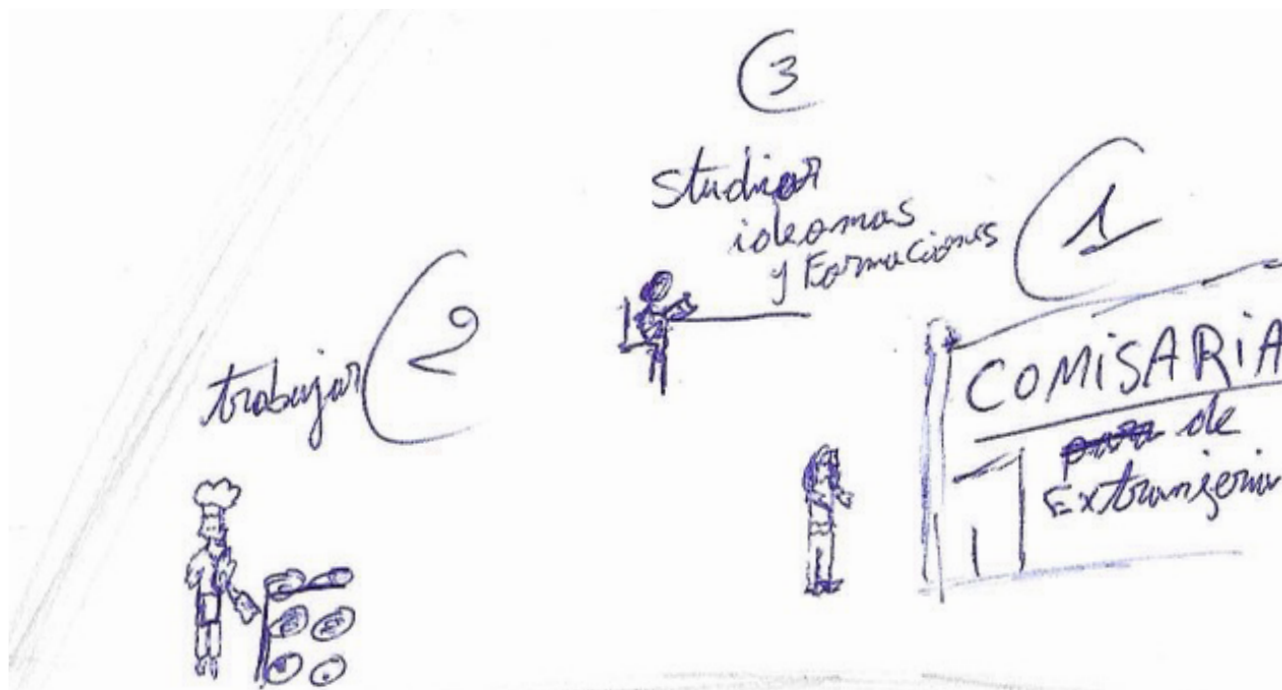 3
Studiar
ideomas
y Formaciones
1
2
trabajar
COMISARIA
de
Extranjeria